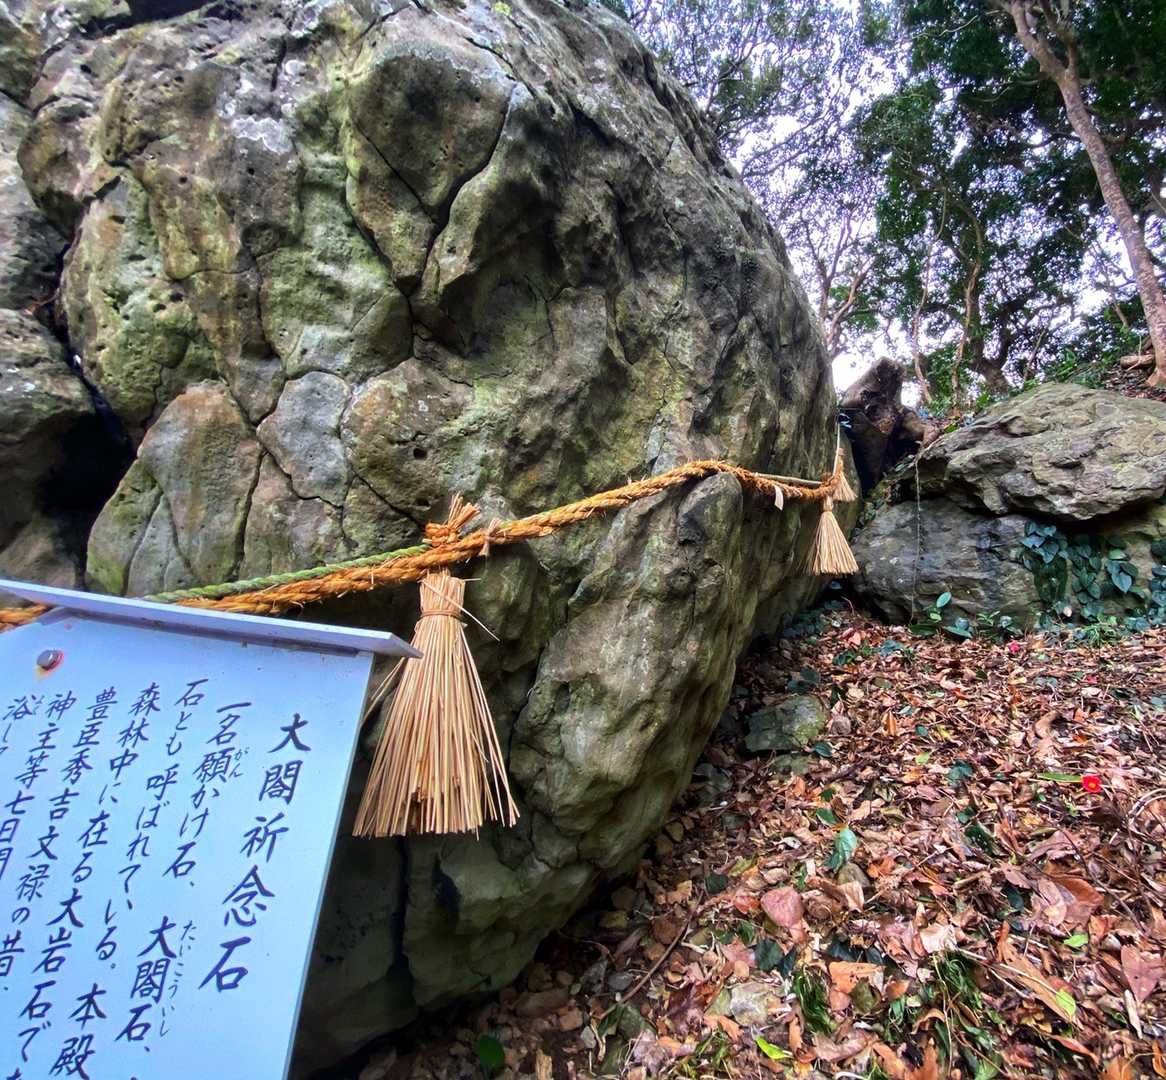 大閤祈念石
一名願かけ石、大閤石、
がん
たいこういし
石とも呼ばれている。本殿
森林中に在る大岩石で
豊臣秀吉文禄の昔
神主等七日間
浴し